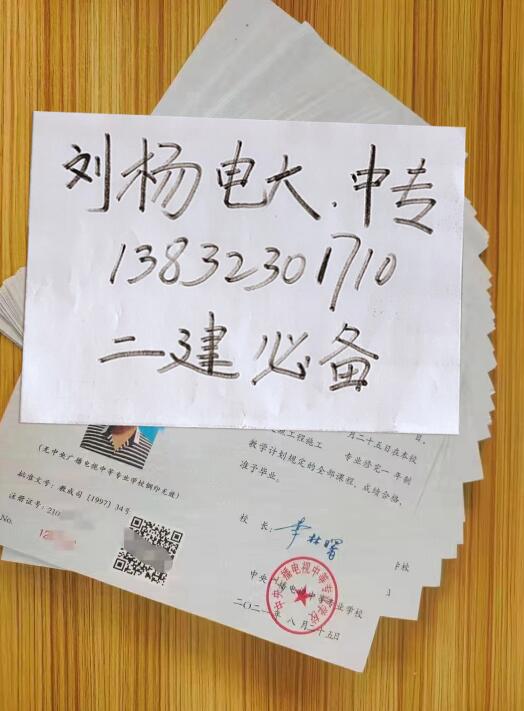 刘杨电大.中专
13832301710
二建必备
工程施工
月二十五日在本校
专业修完一年制
教学计划规定的全部课程，成绩合格，
准予毕业。
(无中央广播电视中等专业学校钢印无效)
批准文号：教成司［1997］34号
注册证号：210
No.
校长：
李林曙
中央广播电视中等专业学校
二〇二一年八月二十五日